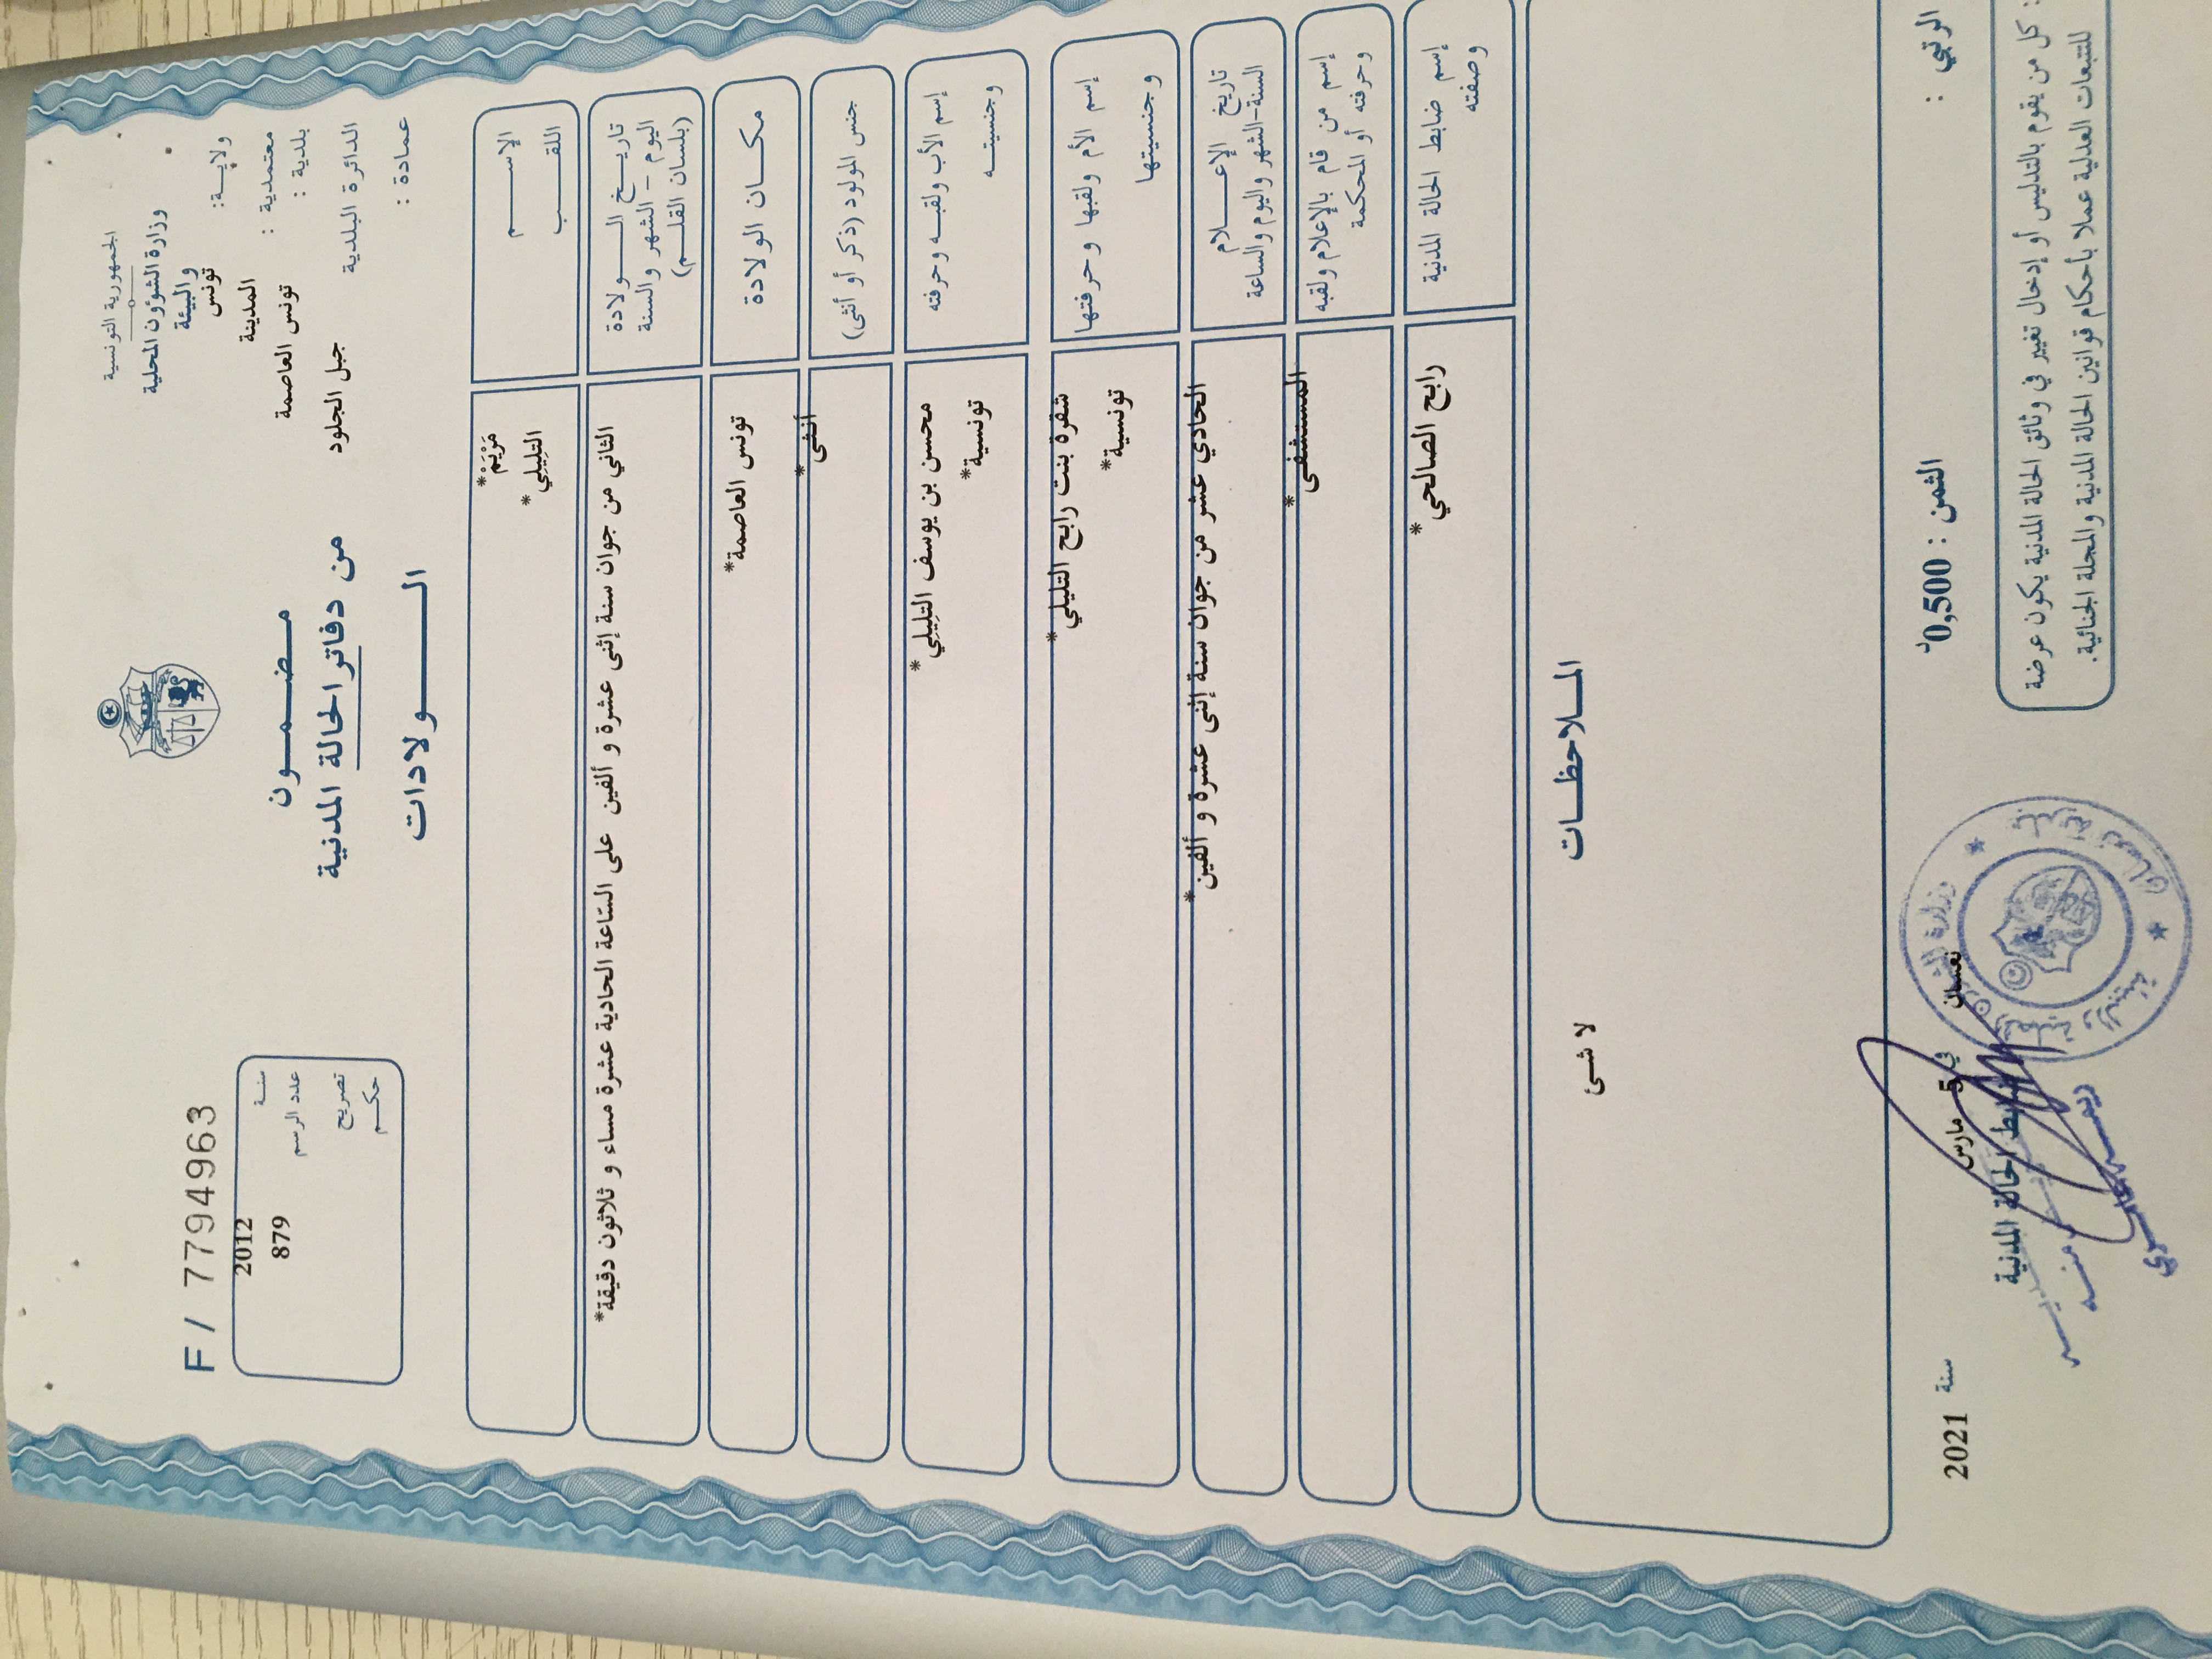 الجمهورية التونسية
وزارة الشؤون المحلية
والبيئة
ولاية: تونس
معتمدية : المدينة
بلدية : تونس العاصمة
الدائرة البلدية جبل الجلود
عمادة :
مضمون
من دفاتر الحالة المدنية
الولادات
F / 7794963
سنة 2012
عدد الرسم 879
تصريح
حكم
الإسم مَرْيَمْ*
اللقب التليلي*
تاريخ الولادة الثاني من جوان سنة إثنى عشرة و ألفين على الساعة الحادية عشرة مساء و ثلاثون دقيقة*
اليوم - الشهر والسنة
(بلسان القلم)
مكان الولادة تونس العاصمة*
جنس المولود (ذكر أو أنثى) أنثى*
إسم الأب ولقبه وحرفته محسن بن يوسف التليلي*
وجنسيته تونسية*
إسم الأم ولقبها وحرفتها شقرة بنت رابح التليلي*
وجنسيتها تونسية*
تاريخ الإعلام الحادي عشر من جوان سنة إثنى عشرة و ألفين*
السنة-الشهر واليوم والساعة
إسم من قام بالإعلام ولقبه المستشفى*
وحرفته أو المحكمة
إسم ضابط الحالة المدنية رابح الصالحي*
وصفته
الملاحظات
لا شئ
الرتبي :
الثمن : 0,500د
نعسان في 5 مارس سنة 2021
ضابط الحالة المدنية
: كل من يقوم بالتدليس أو إدخال تغيير في وثائق الحالة المدنية يكون عرضة
للتتبعات العدلية عملا بأحكام قوانين الحالة المدنية والمجلة الجنائية.